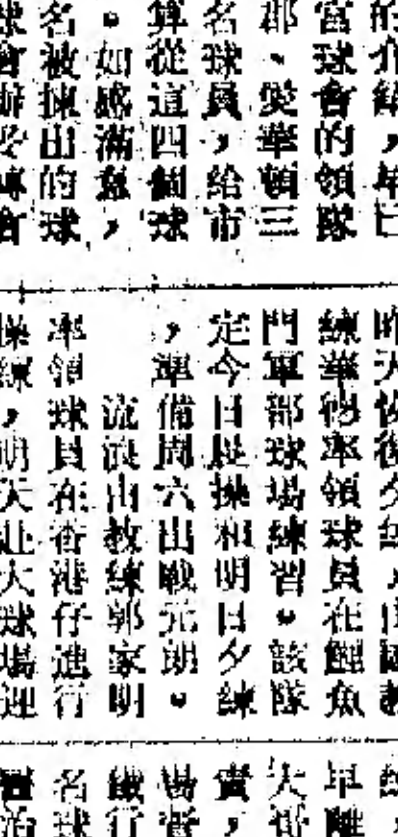 的介紹，
宮球會的領隊
郡、愛華頓三
名球員，給市
算從這四個球
。如感滿意，
名被揀出的球
球會辦妥轉會
昨天恢復夕練，由
練華 率領球員在鯉魚
門軍部球場練習。該隊
定今日晨操和明日夕練
，準備周六出戰元朗。
流浪由教練郭家明
率領球員在香港仔進行
操練，明天赴大球場迎
早離
大
賣，
場
行
名球